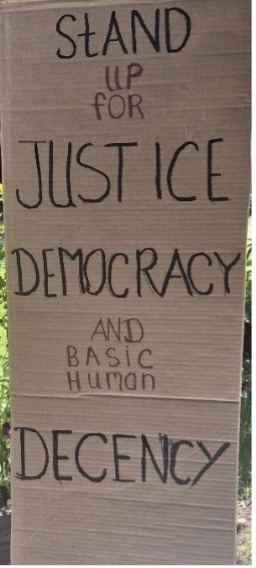 StAND
UP
fOR
JUSTICE
DEMOCRACY
AND
BASiC
Human
DECENCY